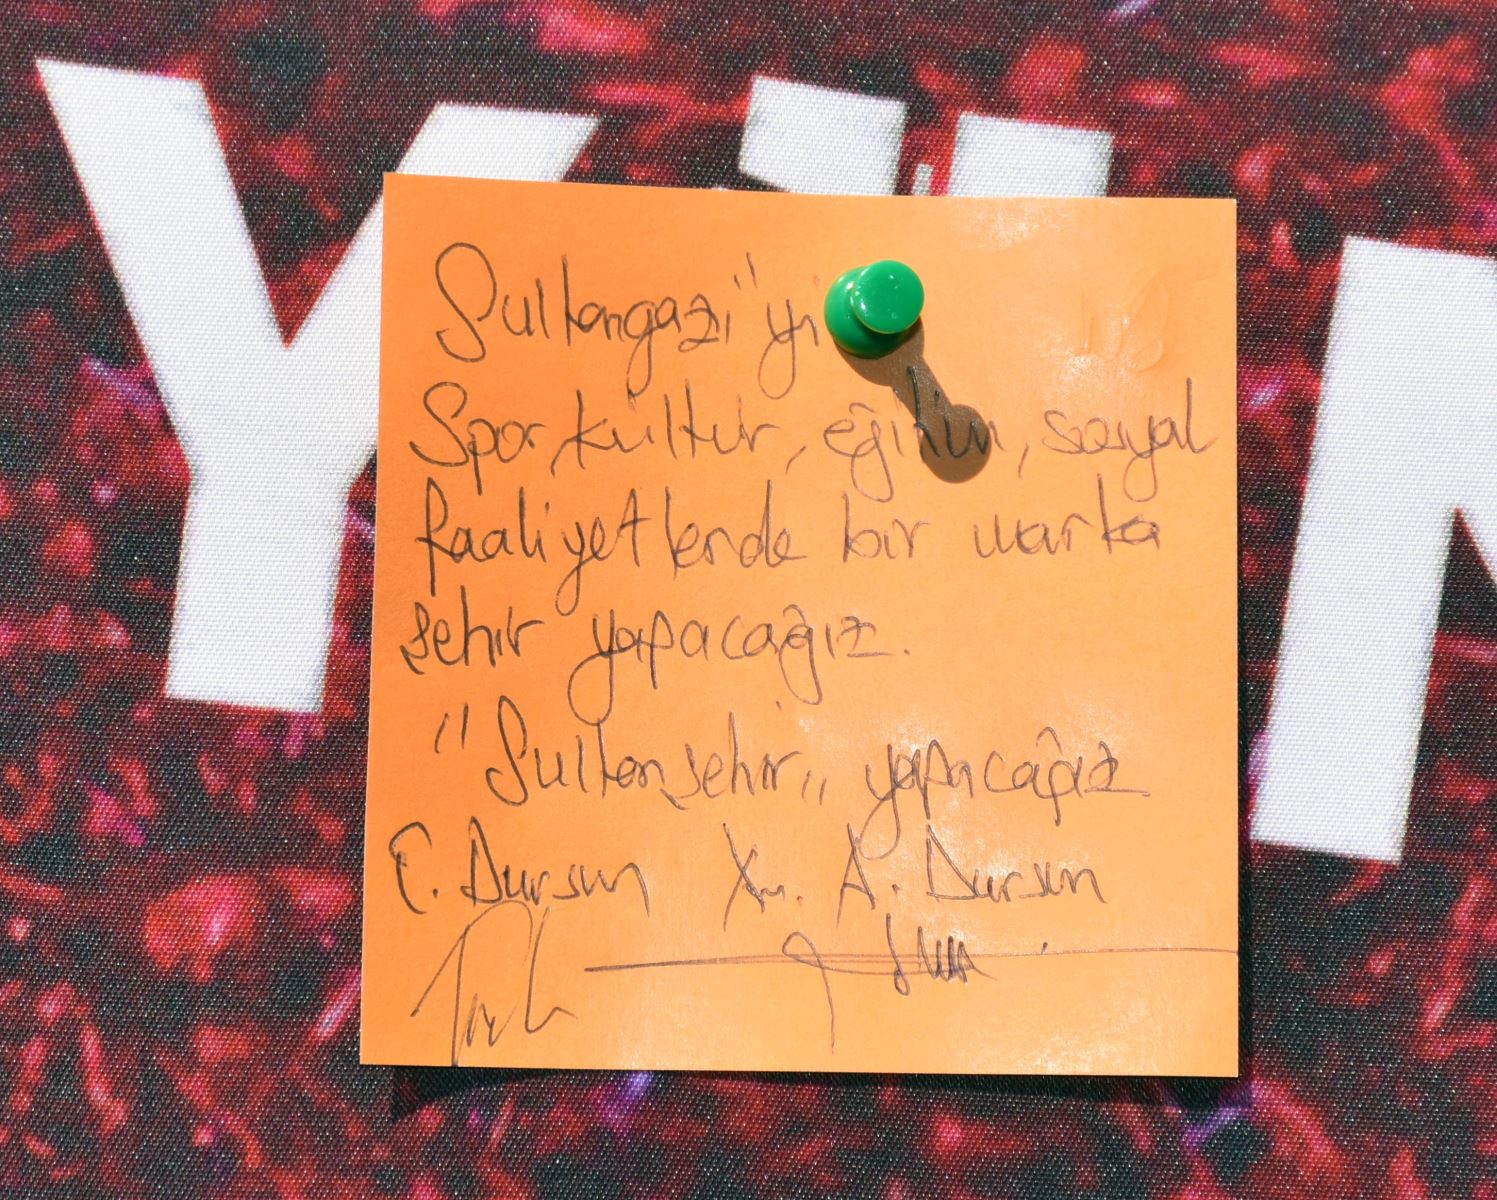 Y
Sultangazi"yi
Spor, kültür, eğitim, sosyal
faaliyetlerde bir marka
şehir yapacağız.
"Sultanşehir" yapacağız
E. Dursun A. Dursun